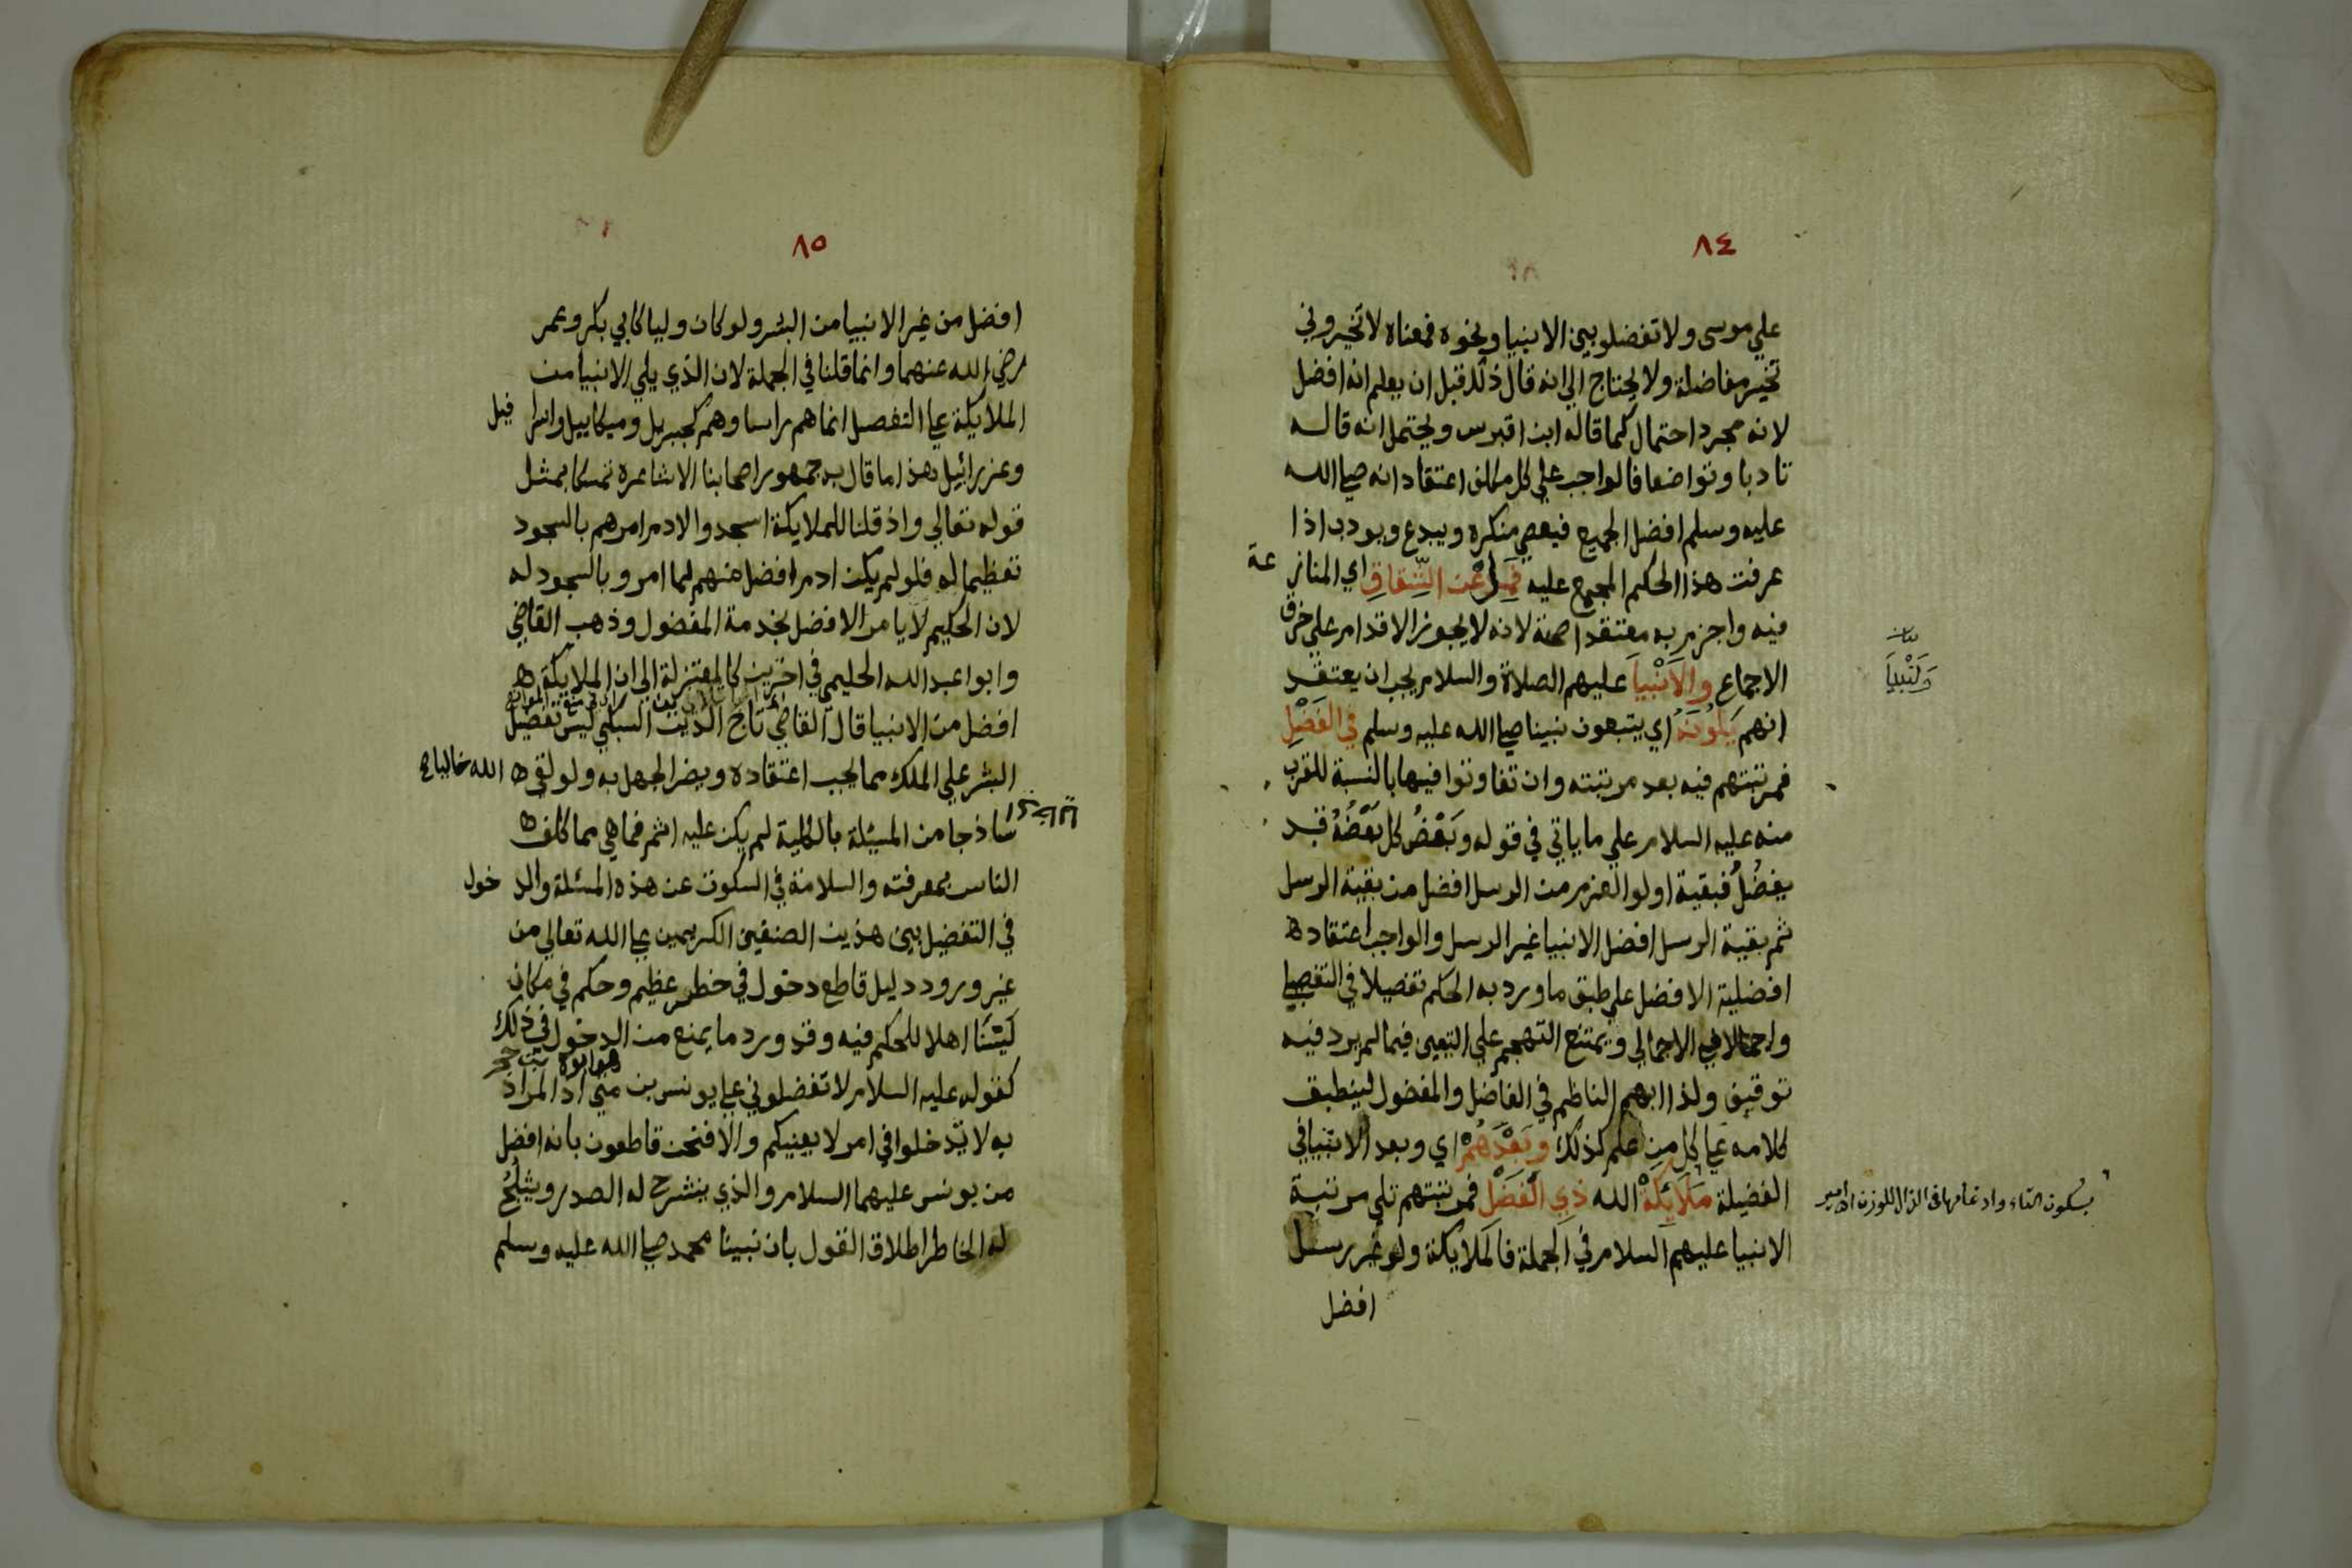 ٨٤
علي موسى ولا تفضلو بين الانبيا ونحوه فمعناه لا تخيروني
تخير مفاضلة ولا يحتاج الي انه قال ذلك قبل ان يعلم انه افضل
لانه مجرد احتمال كما قاله ابن اقبرس ويحتمل انه قاله
تادبا وتواضعا فالواجب علي كل مكلف اعتقاد انه صلى الله
عليه وسلم افضل الجميع فيعصي منكره ويبدع ويودب اذا
عرفت هذا الحكم المجمع عليه فَمِلْ عَن الشِّقَاقِ اي المنازعة
فيه واجزم به معتقدا صحته لانه لا يجوز الاقدام علي خرق
الاجماع والاَنْبيَا عليهم الصلاة والسلام يجب ان يعتقد
وَلَنْبِيَا
انهم يَلُونَهُ اي يتبعون نبينا صلى الله عليه وسلم في الفَضْلِ
فمرتبتهم فيه بعد مرتبته وان تفاوتوا فيها بالنسبة للقرب
منه عليه السلام علي ما ياتي في قوله وبَعْضُ كل بَعْضَهُ قد
يفضُلُ فبقية اولوا العزم من الرسل افضل من بقية الرسل
ثم بقية الرسل افضل الانبيا غير الرسل والواجب اعتقاده
افضلية الافضل علي طبق ما ورد به الحكم تفصيلا في التفصيلي
واجمالا في الاجمالي ويمتنع التهجم علي التعيين فيما لم يرد فيه
توقيف ولذا ابهم الناظم في الفاضل والمفضول لينطبق
كلامه على كل من علم كذلك وبَعْدَهُمْ اي وبعد الانبيا في
الفضيلة مَلَائِكَةْ الله ذي الْفَضْل فمرتبتهم تلي مرتبة
بسكون التاء وادغامها في الذال للوزن اه امير
الانبيا عليهم السلام في الجملة فالملايكة ولو غير رسل
افضل
٨٥
افضل من غير الانبيا من البشر ولو كان وليا كابي بكر وعمر
رضي الله عنهما وانما قلنا في الجملة لان الذي يلي الانبيا من
الملايكة على التفصيل انما هم راسا وهم كجبريل وميكاييل واسرافيل
وعزرائيل هذا ما قال به جمهور اصحابنا الاشاعرة تمسكا بمثل
قوله تعالي واذ قلنا للملايكة اسجدوا لادم امرهم بالسجود
تعظيما له فلو لم يكن ادم افضل منهم لما امروا بالسجود له
لان الحكيم لا يامر الافضل بخدمة المفضول وذهب القاضي
وابوا عبد الله الحليمي في اخرين كالمعتزلة الي ان الملايكة
افضل من الانبيا قال القاضي تاج الدين السبكي ليس تفضيل
البشر علي الملك مما يجب اعتقاده ويضر الجهل به ولو لقي الله خاليا
ساذجا من المسئلة بالكلية لم يكن عليه اثم فما هي مما كلف
الناس بمعرفته والسلامة في السكوت عن هذه المسئلة والدخول
في التفضيل بين هذين الصنفين الكريمين على الله تعالي من
غير ورود دليل قاطع دخول في خطر عظيم وحكم في مكان
لَسْنَا اهلا للحكم فيه وقد ورد ما يمنع من الدخول في ذلك
هو ابوه حجر
كقوله عليه السلام لا تفضلوني على يونس بن متي اذ المراد
به لا تدخلوا في امر لا يعنيكم والا فنحن قاطعون بانه افضل
من يونس عليهما السلام والذي ينشرح له الصدر ويثلج
له الخاطر اطلاق القول بان نبينا محمد صلى الله عليه وسلم